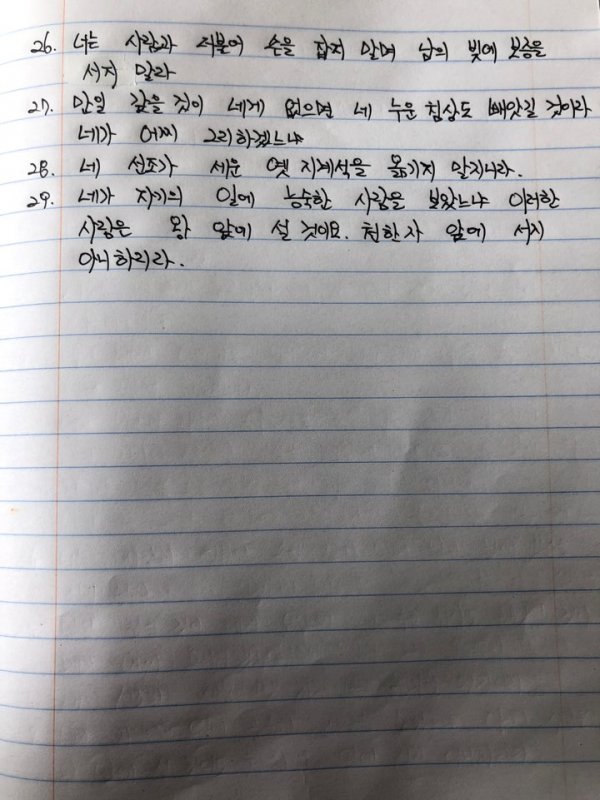 26. 너는 사람과 더불어 손을 잡지 말며 남의 빚에 보증을
서지 말라
27. 만일 갚을 것이 네게 없으면 네 누운 침상도 빼앗길 것이라
네가 어찌 그리하겠느냐
28. 네 선조가 세운 옛 지계석을 옮기지 말지니라.
29. 네가 자기의 일에 능숙한 사람을 보았느냐 이러한
사람은 왕 앞에 설 것이요. 천한 자 앞에 서지
아니하리라.